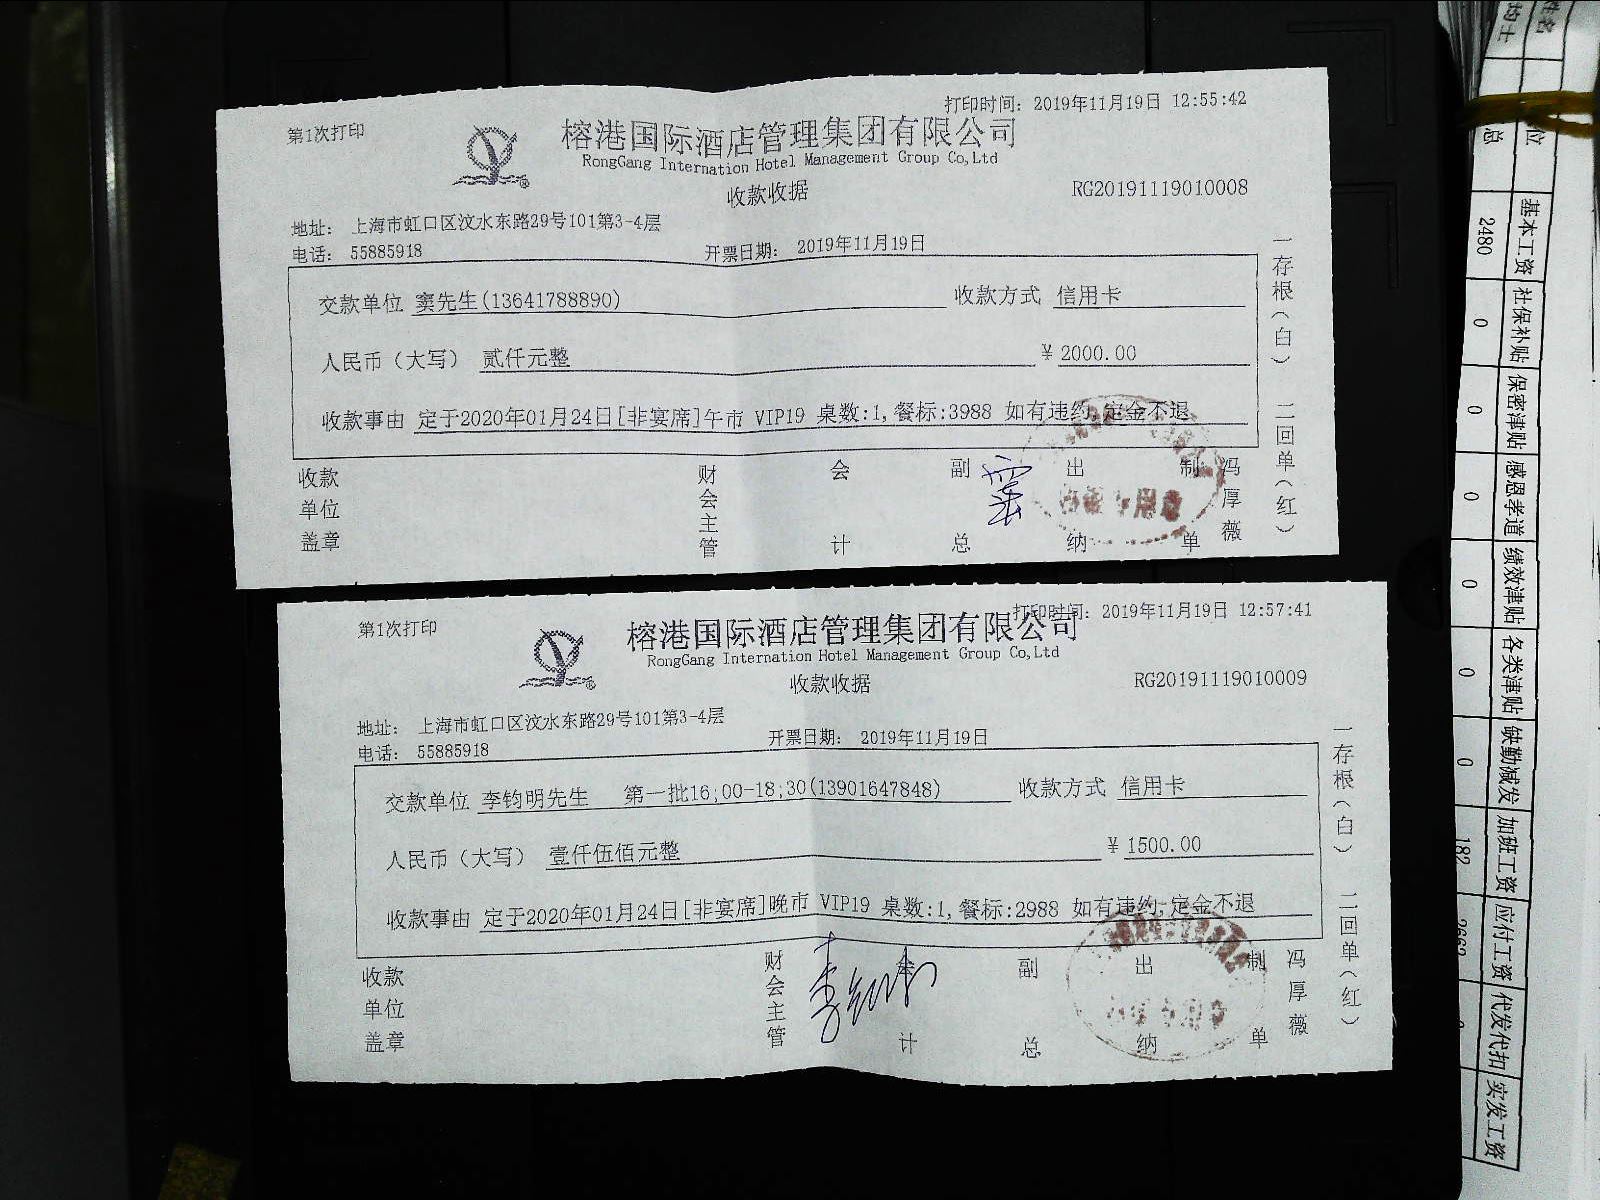 打印时间: 2019年11月19日 12:55:42
第1次打印
榕港国际酒店管理集团有限公司
RongGang Internation Hotel Management Group Co,Ltd
收款收据
RG20191119010008
地址: 上海市虹口区汶水东路29号101第3-4层
电话: 55885918
开票日期: 2019年11月19日
交款单位 窦先生(13641788890) 收款方式 信用卡
人民币(大写) 贰仟元整 ¥ 2000.00
收款事由 定于2020年01月24日[非宴席]午市 VIP19 桌数:1,餐标:3988 如有违约,定金不退
收款单位盖章 财会主管 会计 副总 出纳 制单 冯厚薇
一存根(白) 二回单(红)
打印时间: 2019年11月19日 12:57:41
第1次打印
榕港国际酒店管理集团有限公司
RongGang Internation Hotel Management Group Co,Ltd
收款收据
RG20191119010009
地址: 上海市虹口区汶水东路29号101第3-4层
电话: 55885918
开票日期: 2019年11月19日
交款单位 李钧明先生 第一批16;00-18;30(13901647848) 收款方式 信用卡
人民币(大写) 壹仟伍佰元整 ¥ 1500.00
收款事由 定于2020年01月24日[非宴席]晚市 VIP19 桌数:1,餐标:2988 如有违约,定金不退
收款单位盖章 财会主管 会计 副总 出纳 制单 冯厚薇
一存根(白) 二回单(红)
姓名
位 基本工资 社保补贴 保密津贴 感恩孝道 绩效津贴 各类津贴 缺勤减发 加班工资 应付工资 代发代扣 实发工资
总 2480 0 0 0 0 0 0 182